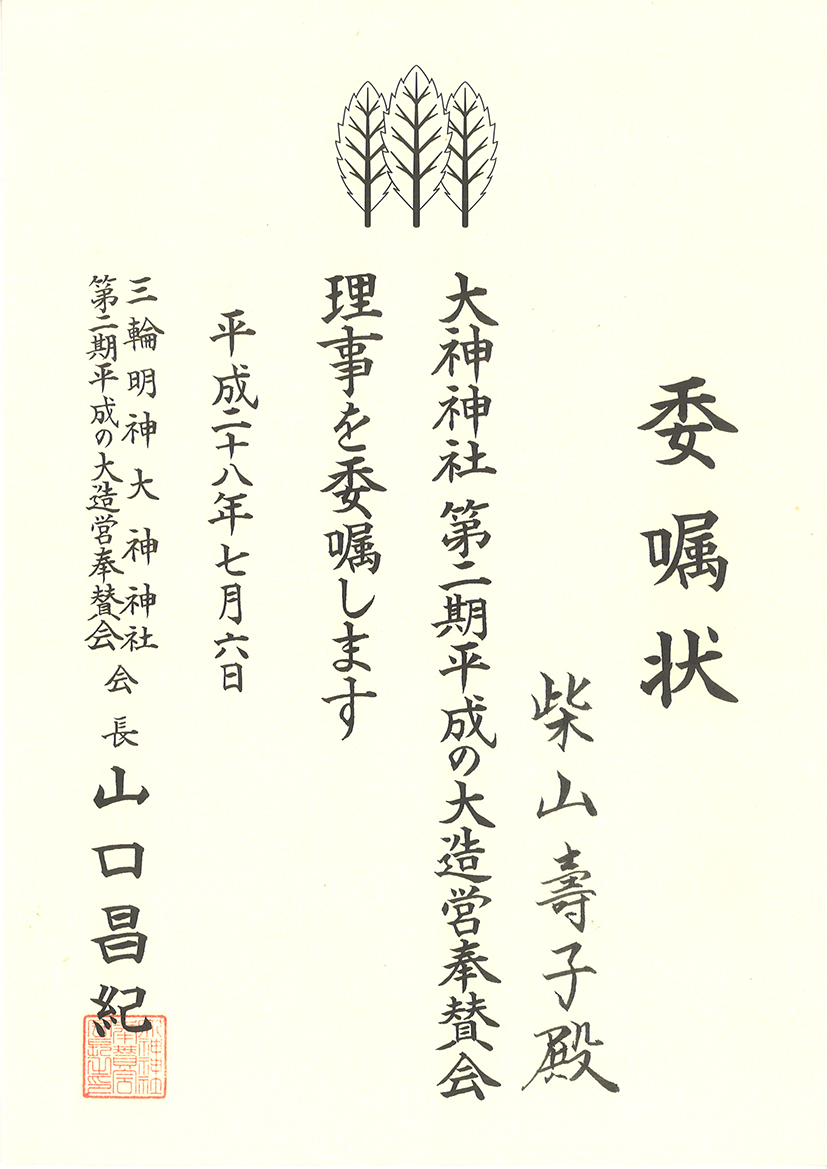 委嘱状
柴山壽子殿
大神神社 第二期平成の大造営奉賛会
理事を委嘱します
平成二十八年七月六日
三輪明神大神神社
第二期平成の大造営奉賛会
会長 山口昌紀